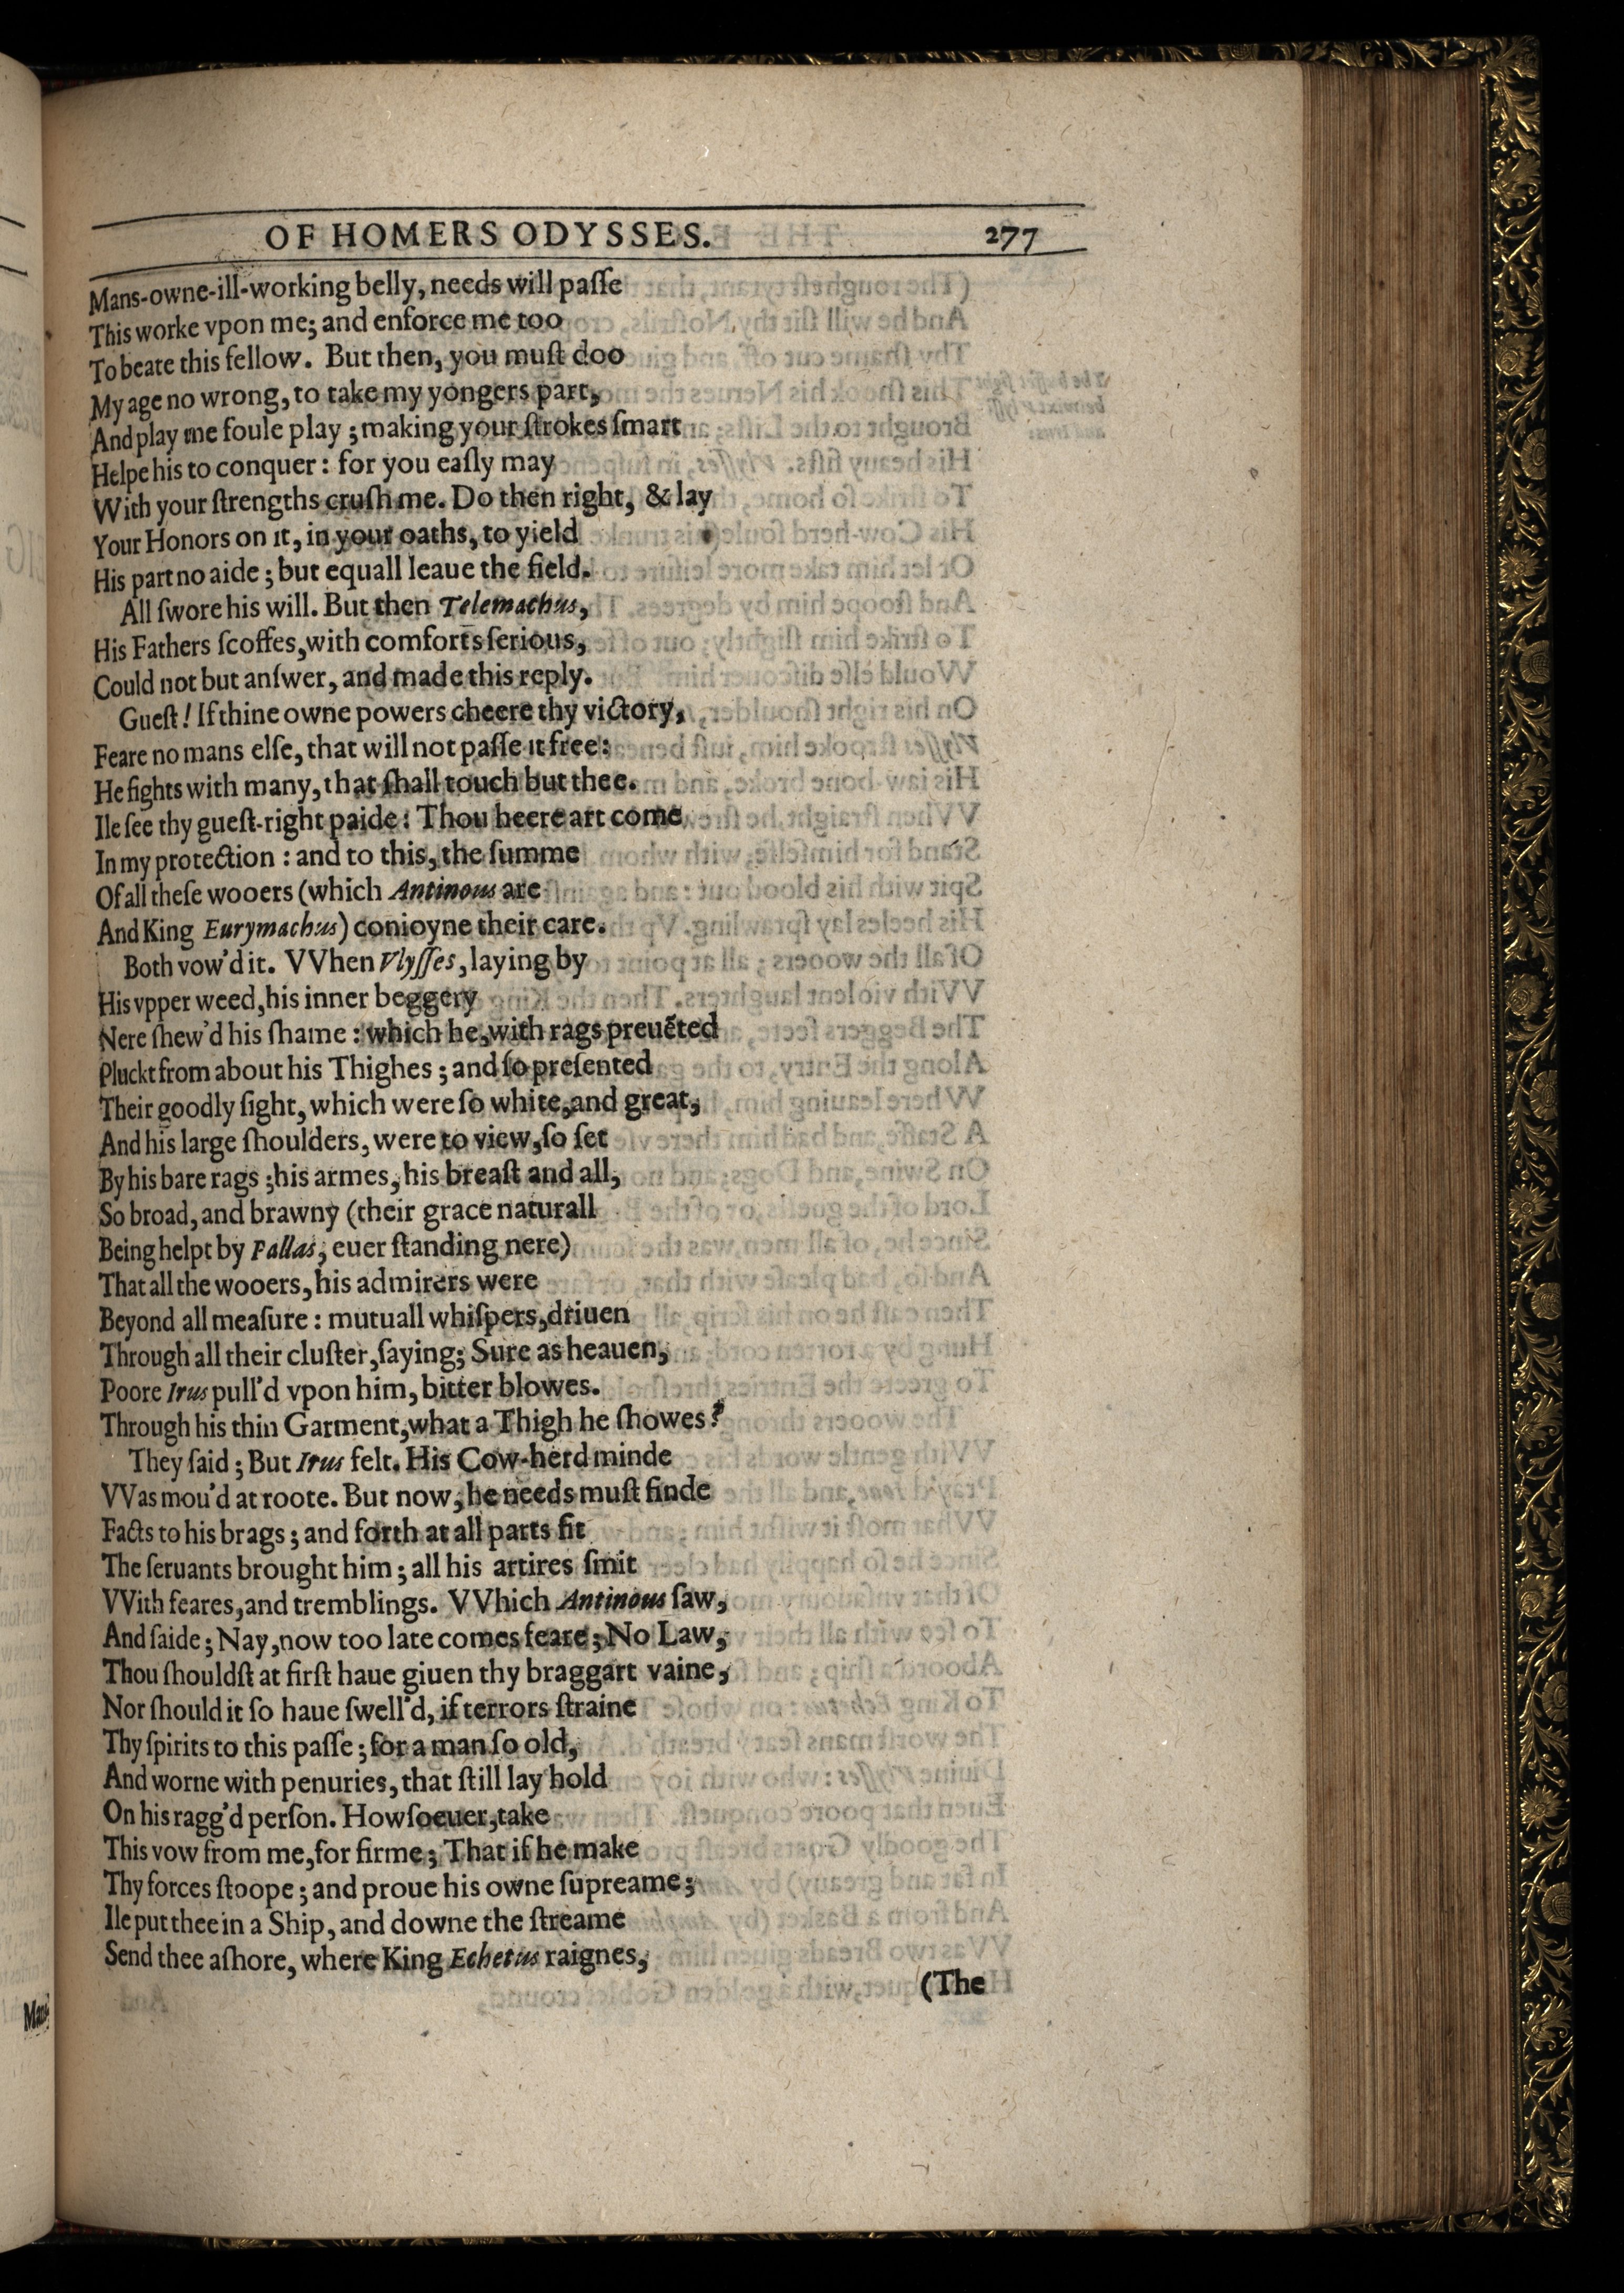 OF HOMERS ODYSSES. 277
Mans-owne-ill-working belly, needs will paſſe
This worke vpon me; and enforce me too
To beate this fellow. But then, you muſt doo
My age no wrong, to take my yongers part,
And play me foule play; making your ſtrokes ſmart
Helpe his to conquer: for you eaſly may
With your ſtrengths cruſh me. Do then right, & lay
Your Honors on it, in your oaths, to yield
His part no aide; but equall leaue the field.
All ſwore his will. But then Telemachus,
His Fathers ſcoffes, with comforts ſerious,
Could not but anſwer, and made this reply.
Gueſt! If thine owne powers cheere thy victory,
Feare no mans elſe, that will not paſſe it free:
He fights with many, that ſhall touch but thee.
Ile ſee thy gueſt-right paide: Thou heere art come
In my protection: and to this, the ſumme
Of all theſe wooers (which Antinous are
And King Eurymachus) conioyne their care.
Both vow'd it. VVhen Vlyſſes, laying by
His vpper weed, his inner beggery
Nere ſhew'd his ſhame: which he, with rags preuēted
Pluckt from about his Thighes; and ſo preſented
Their goodly ſight, which were ſo white, and great,
And his large ſhoulders, were to view, ſo ſet
By his bare rags; his armes, his breaſt and all,
So broad, and brawny (their grace naturall
Being helpt by Pallas, euer ſtanding nere)
That all the wooers, his admirers were
Beyond all meaſure: mutuall whiſpers, driuen
Through all their cluſter, ſaying; Sure as heauen,
Poore Irus pull'd vpon him, bitter blowes.
Through his thin Garment, what a Thigh he ſhowes?
They ſaid; But Irus felt. His Cow-herd minde
VVas mou'd at roote. But now, he needs muſt finde
Facts to his brags; and forth at all parts fit
The ſeruants brought him; all his artires ſmit
VVith feares, and tremblings. VVhich Antinous ſaw,
And ſaide; Nay, now too late comes feare; No Law,
Thou ſhouldſt at firſt haue giuen thy braggart vaine,
Nor ſhould it ſo haue ſwell'd, if terrors ſtraine
Thy ſpirits to this paſſe; for a man ſo old,
And worne with penuries, that ſtill lay hold
On his ragg'd perſon. Howſoeuer, take
This vow from me, for firme; That if he make
Thy forces ſtoope; and proue his owne ſupreame;
Ile put thee in a Ship, and downe the ſtreame
Send thee aſhore, where King Echetus raignes,
(The